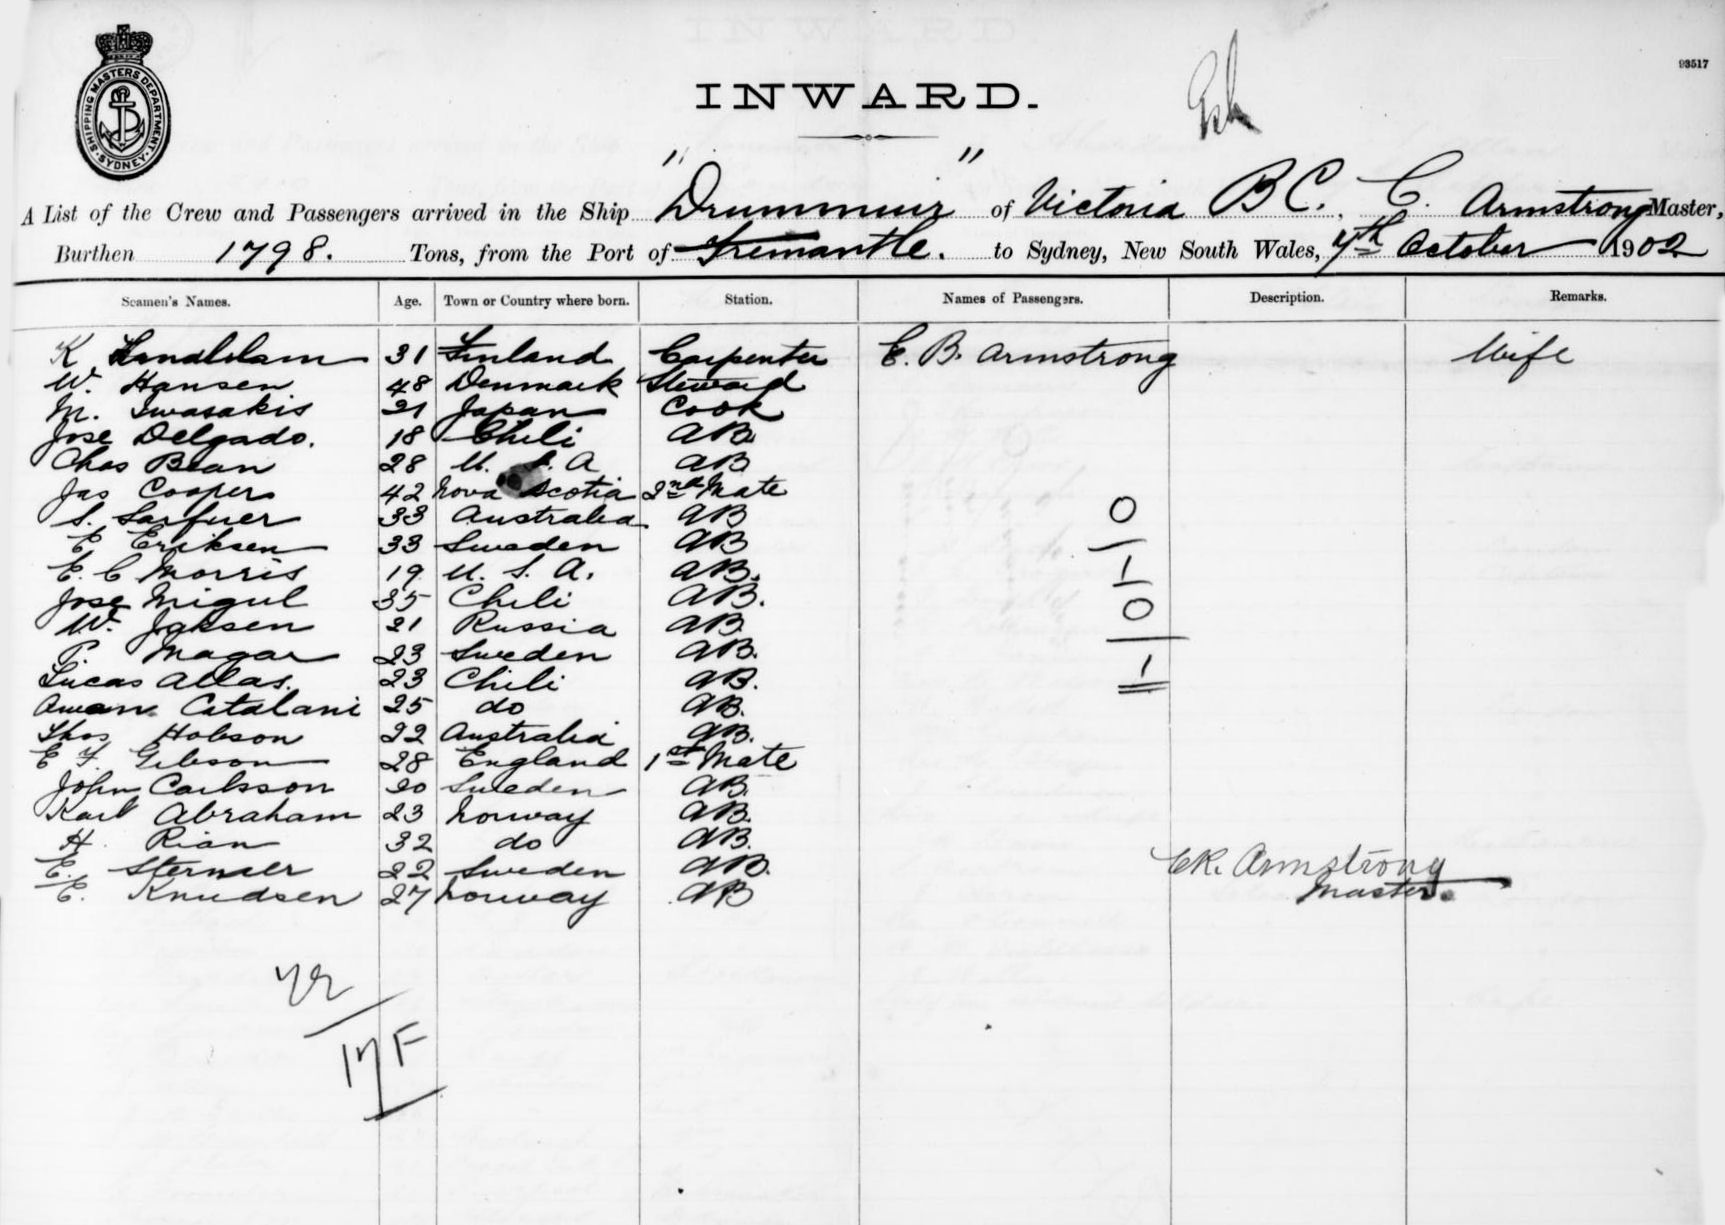 93517
SHIPPING MASTERS DEPARTMENT. SYDNEY.
INWARD.
A List of the Crew and Passengers arrived in the Ship "Drummuir" of Victoria B C. , C. Armstrong Master,
Burthen 1798. Tons, from the Port of Fremantle. to Sydney, New South Wales, 7th October 1902
Seamen's Names. Age. Town or Country where born. Station. Names of Passengers. Description. Remarks.
K 31 Finland Carpenter E. B. Armstrong Wife
W. Hansen 48 Denmark Steward
M. Iwasakis 21 Japan Cook
Jose Delgado. 18 Chili AB
Chas Bean 28 U. S. A AB
Jas Cooper 42 Nova Scotia 2nd Mate
S. 33 Australia AB 0
E Eriksen 33 Sweden AB
E. C Morris 19 U. S. A. AB. 1
Jose Migul 35 Chili AB. 0
W. Jaksen 21 Russia AB
P. Magar 23 Sweden AB. 1
Lucas Allas. 23 Chili AB.
Catalani 25 do AB.
Thos Hobson 22 Australia AB.
E F. Gibson 28 England 1st Mate
John Carlsson 20 Sweden AB.
Karl Abraham 23 Norway AB.
H. Rian 32 do AB.
E. 22 Sweden AB.
E. Knudsen 27 Norway AB
C.R. Armstrong
Master.
17 F